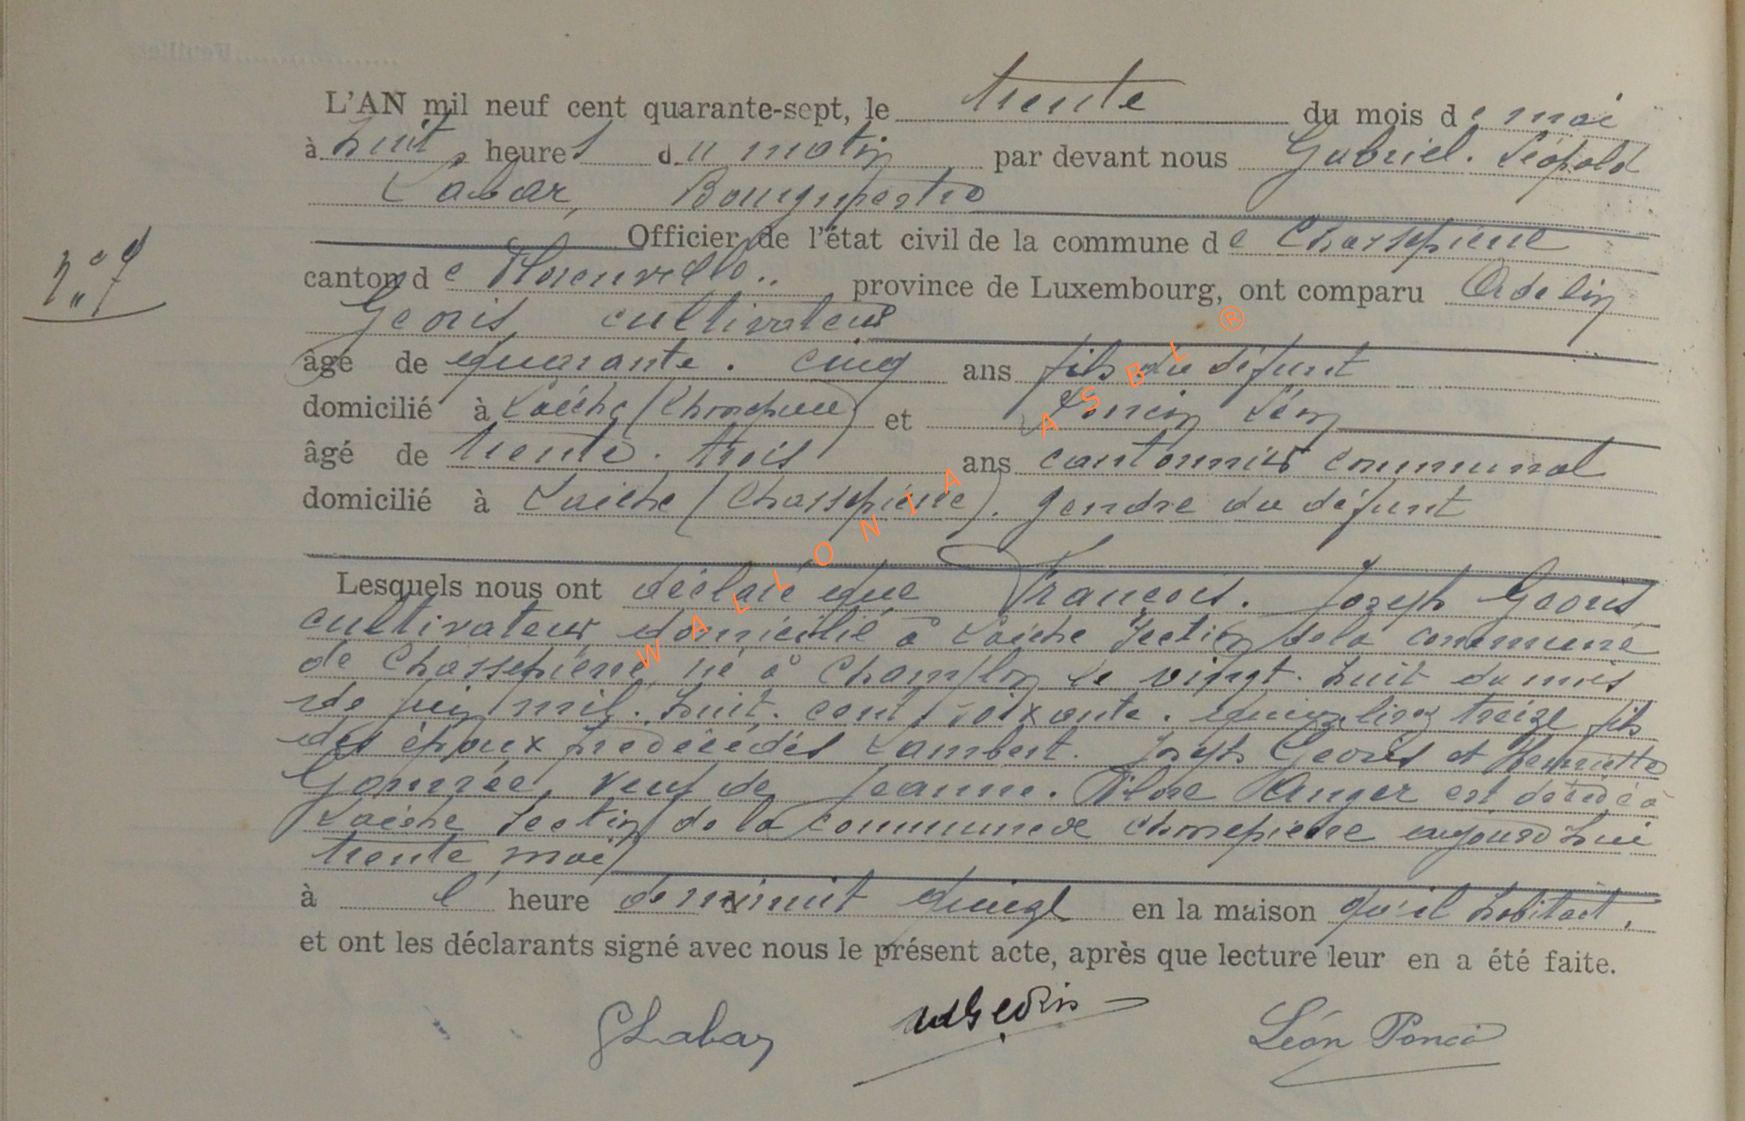 L'AN mil neuf cent quarante-sept, le trente du mois de mai
à huit heures du matin par devant nous Gabriel. Léopold
Labar, Bourgmestre
Officier de l'état civil de la commune de Chassepierre
n° 7
canton de Florenville.. province de Luxembourg, ont comparu Adelin
Georis, cultivateur
âgé de quarante. cinq ans fils du défunt
domicilié à Laiche (Chassepierre) et Poncin Léon
âgé de trente. trois ans cantonnier communal
domicilié à Laiche (Chassepierre). gendre du défunt
Lesquels nous ont déclaré que François. Joseph Georis,
cultivateur domicilié à Laiche section de la commune
de Chassepierre, né à Champlon le vingt. huit du mois
de juin mil. huit. cent soixante. treize fils
des époux prédécédés Lambert. Joseph Georis et Henriette
Gomrée, veuf de Jeanne. Anger est décédé à
Laiche section de la commune de Chassepierre aujourd'hui
trente mai
à heure de minuit en la maison qu'il habitait,
et ont les déclarants signé avec nous le présent acte, après que lecture leur en a été faite.
GLabar AdGeoris Léon Poncin
WALLONIA ASBL ®